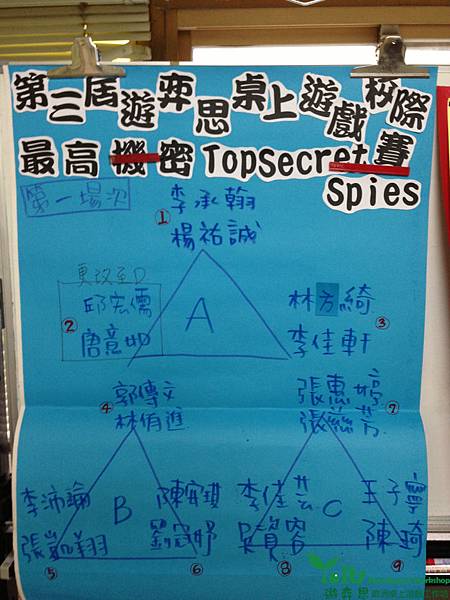 第三屆遊弈思桌上遊戲校際
最高機密TopSecret賽
Spies
第一場次
①
李承翰
楊祐誠
更改至D
邱宏儒
唐意如
②
A
林方綺
李佳軒
③
④
郭傳文
林侑進
李沛諭
張凱翔
⑤
B
陳宥琪
劉冠妤
⑥
張惠婷
張 芳
⑦
李佳芸
吳資容
⑧
C
王子寧
陳琦
⑨
遊弈思